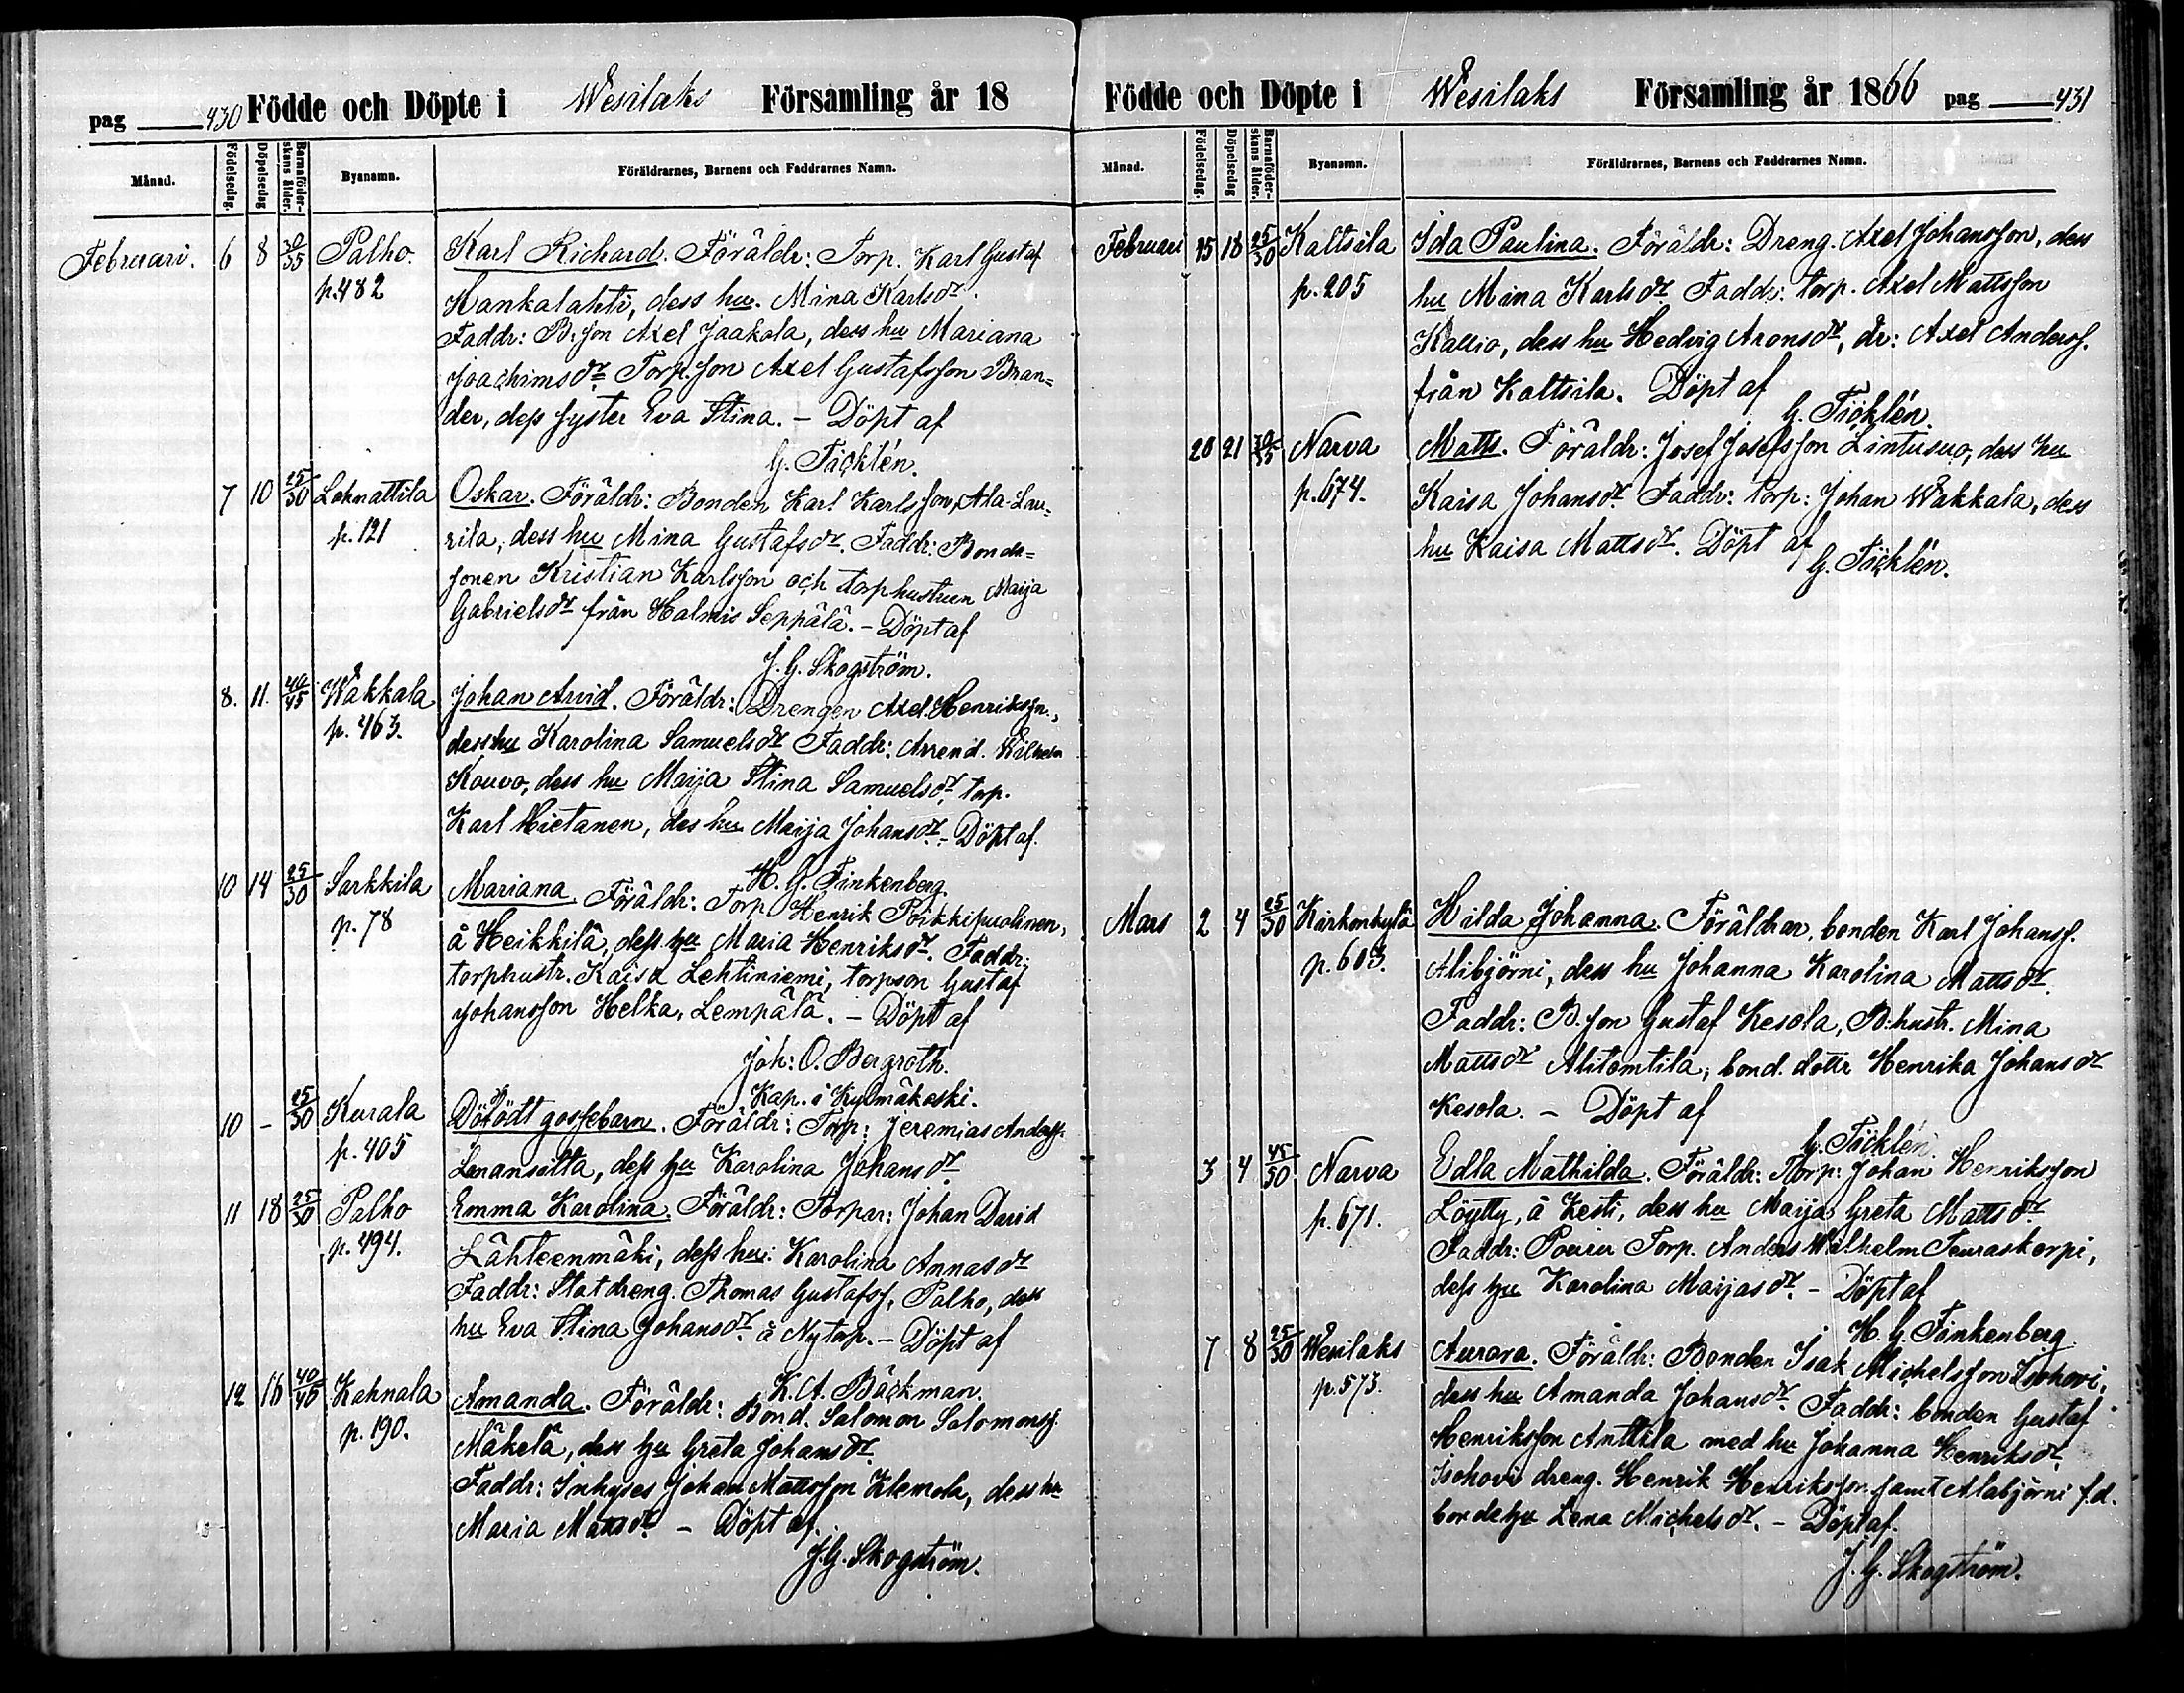 pag 430 Födde och Döpte i Wesilaks Församling år 18
Månad. Födelsedag. Döpelsedag Barnaföder-skans ålder. Byanamn. Föräldrarnes, Barnens och Faddrarnes Namn.
Februari. 6 8 30/35 Palho. Karl Richard. Föräldr: Torp. Karl Gustaf
p. 482 Hankalahti, dess hu. Mina Karlsdr.
Faddr: B. son Axel Jaakola, dess hu Mariana
Joachimsdr. Torp. son Axel Gustafsson Bran=
der, dess syster Eva Stina. - Döpt af
G. Täcklén.
7 10 25/30 Lohnattila Oskar. Föräldr: Bonden Karl Karlsson, Ala-Lau=
p. 121 rila, dess hu Mina Gustafsdr. Faddr: Bonde=
sonen Kristian Karlsson och torphustrun Maija
Gabrielsdr från Halmis Seppälä. - Döpt af
J. G. Skogström.
8. 11. 40/45 Wakkala Johan Arvid. Föräldr: Drengen Axel Henrikssn.,
p. 463. dess hu Karolina Samuelsdr Faddr: Arrend. Wilhelm
Kouvo, dess hu Maija Stina Samuelsdr, torp.
Karl Hietanen, des hu Maija Johansdr. - Döpt af.
H. G. Finkenberg.
10 14 25/30 Sarkkila Mariana Föräldr: Torp Henrik Poikkipuolinen,
p. 78 å Heikkilä, dess hu Maria Henriksdr. Faddr:
torphustr. Kaisa Lehtiniemi, torpson Gustaf
Johansson Helka, Lempälä. - Döpt af
Joh: O. Bergroth.
Kap. i Kylmäkoski.
10 - 25/30 Kurala Dödfödt gossebarn. Föräldr: Torp: Jeremias Anderss.
p. 405 Lenansilta, dess hu Karolina Johansdr
11 18 25/30 Palho Emma Karolina. Föräldr: Torpar: Johan David
p. 494. Lähteenmäki, dess hu: Karolina Annasdr
Faddr: Statdreng. Thomas Gustafss, Palho, dess
hu Eva Stina Johansdr. å Nytorp. - Döpt af
K. A. Bäckman.
12 16 40/45 Kahnala Amanda. Föräldr: Bond. Salomon Salomonss.
p. 190. Mäkelä, dess hu Greta Johansdr.
Faddr: Inhyses Johan Mattsson Klemola, dess hu
Maria Mattsdr. - Döpt af.
J. G. Skogström.
Födde och Döpte i Wesilaks Församling år 1866 pag 431
Månad. Födelsedag. Döpelsedag Barnaföder-skans ålder. Byanamn. Föräldrarnes, Barnens och Faddrarnes Namn.
Februari 15 18 25/30 Kaltsila Ida Paulina. Föräldr: Dreng. Axel Johansson, dess
p. 205 hu Mina Karlsdr Faddr: torp. Axel Mattsson
Kallio, dess hu Hedvig Aronsdr, dr: Axel Anderss.
från Kaltsila. Döpt af
G. Täcklén.
20 21 30/35 Narva Matts. Föräldr: Josef Josefsson Lintusuo, dess hu
p. 674. Kaisa Johansdr Faddr: torp: Johan Wakkala, dess
hu Kaisa Mattsdr. Döpt af
G. Täcklén.
Mars 2 4 25/30 Kirkonkylä Hilda Johanna. Föräldrar, bonden Karl Johanss.
p. 603. Alibjörni, dess hu Johanna Karolina Mattsdr.
Faddr: B. son Gustaf Kesola, B: hustr. Mina
Mattsdr Alitomtila, bond. dottr Henrika Johansdr
Kesola. - Döpt af
G. Täcklén.
3 4 45/50 Narva Edla Mathilda. Föräldr: Torp: Johan Henriksson
p. 671. Löytty, å Kesti, dess hu Maija Greta Mattsdr.
Faddr: Torp. Anders Wilhelm Teuraskorpi,
dess hu Karolina Maijasdr. - Döpt af
H. G. Finkenberg
7 8 25/30 Wesilaks Aurora. Föräldr: Bonden Isak Michelsson Isohovi,
p. 573. dess hu Amanda Johansdr. Faddr: bonden Gustaf
Henriksson Anttila med hu Johanna Henriksdr.
Isohovi dreng. Henrik Henriksson samt Alabjörni f.d.
bondehu Lena Michelsdr. - Döpt af.
J. G. Skogström.